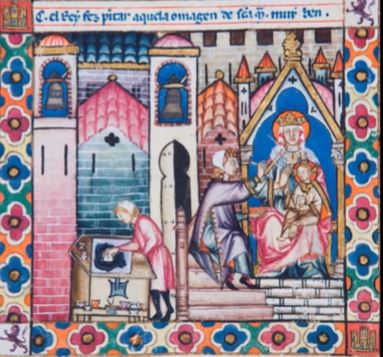 C. el Rey fez pĩtar aquela omagen de sc̃a. m̃. muy ben.